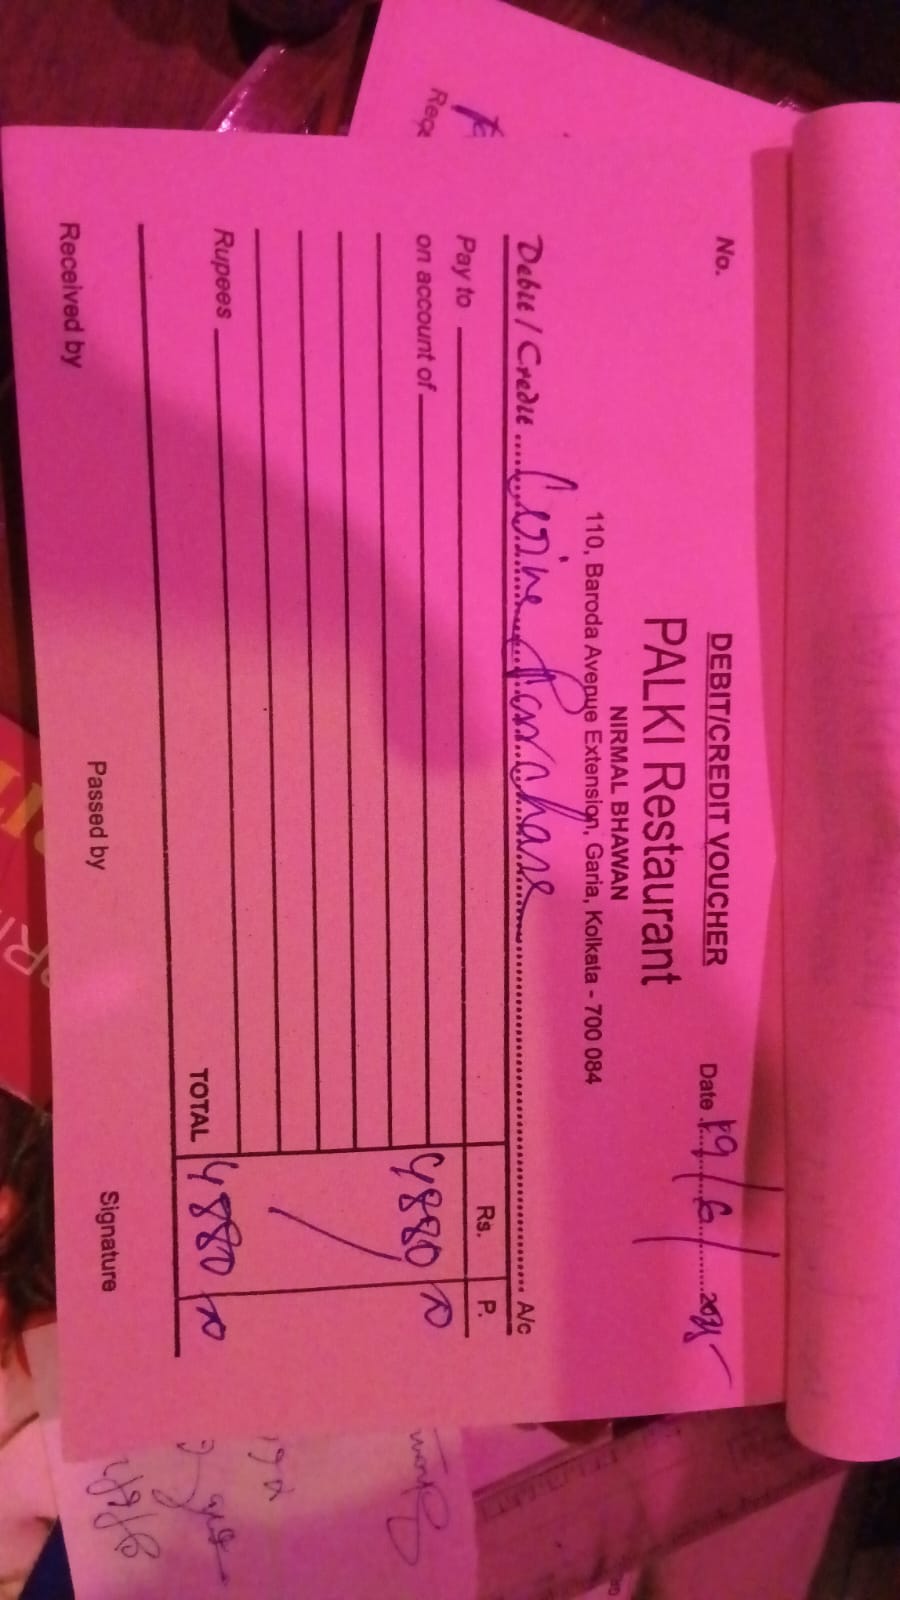 No.
DEBIT/CREDIT VOUCHER
Date 19/6/2025
PALKI Restaurant
NIRMAL BHAWAN
110, Baroda Avenue Extension, Garia, Kolkata - 700 084
Debit / Credit Purchase A/c
Pay to
Rs. P.
on account of
4880
Rupees
TOTAL 4880
Received by Passed by Signature